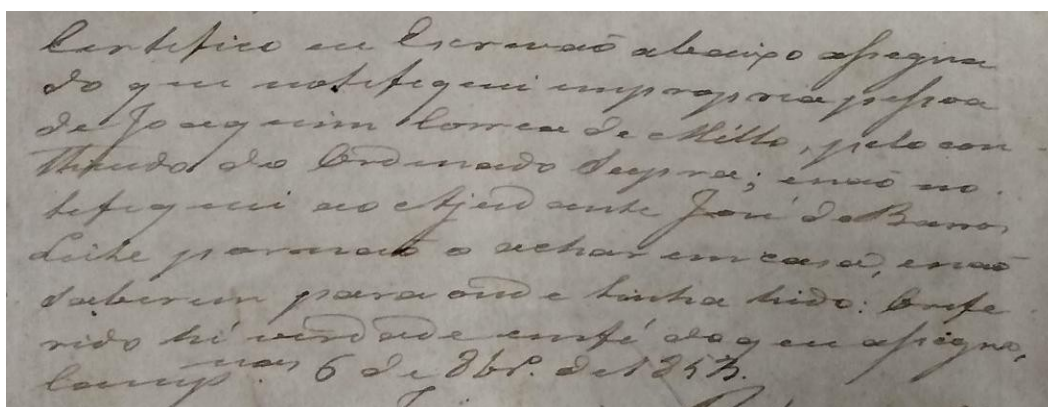 Certefico eu Escrivaõ abaixo assigna
do que notefiquei em propria pessoa
de Joaquim Correa de Mello, pelo con
theudo do Ordenado Supra; enaõ no.
tefiquei ao Ajudante José de Barros
Leite pornaõ o achar em casa, enaõ
saberem para onde tinha hido: Orefe
rido hé verdade emfé doque assigno,
Camp.nas 6 de 8br.º de 1853.